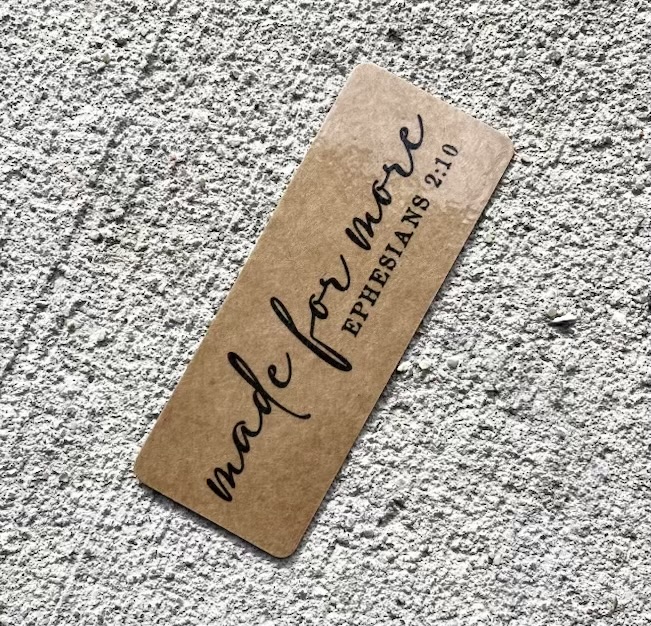 made for more
EPHESIANS 2:10